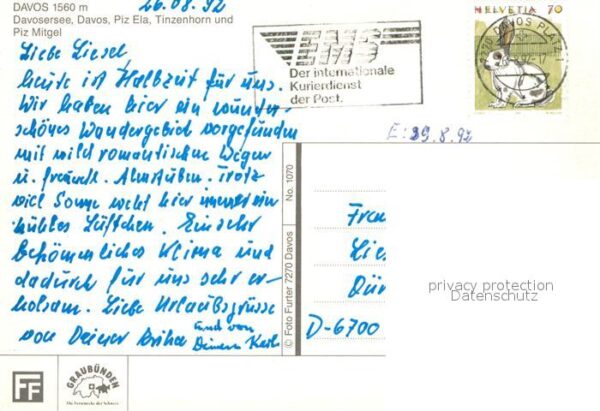 DAVOS 1560 m
Davosersee, Davos, Piz Ela, Tinzenhorn und
Piz Mitgel
26.08.92
EMS
Der internationale
Kurierdienst
der Post.
HELVETIA 70
7270 DAVOS PLATZ 1
E: 29.8.92
Liebe Liesel,
heute ist Halbzeit für uns.
Wir haben hier ein wunder-
schönes Wandergebiet vorgefunden
mit wild romantischen Wegen
u. freundl. Almstuben. Trotz
viel Sonne weht hier immer ein
kühles Lüftchen. Ein sehr
bekömmliches Klima und
dadurch für uns sehr er-
holsam. Liebe Urlaubsgrüsse
von Deiner
und von
Deinem Karl
No. 1070
© Foto Furter 7270 Davos
Frau
Lie
Dür
D-6700
privacy protection
Datenschutz
FF
GRAUBÜNDEN
Die Ferienecke der Schweiz